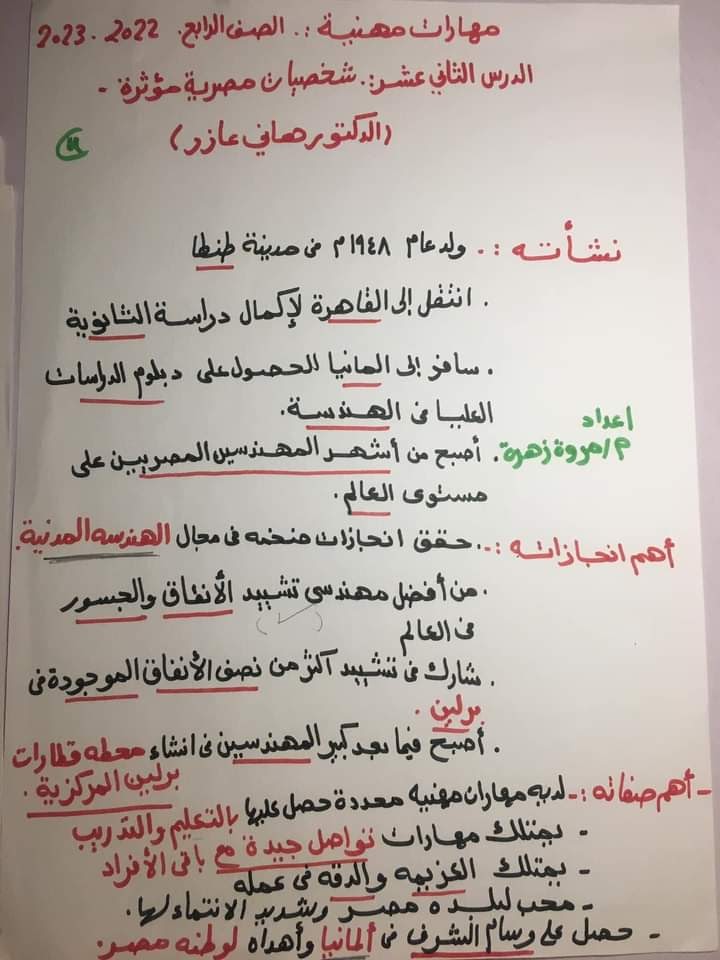 مهارات مهنية :. الصف الرابع. 2022 . 2023
الدرس الثاني عشر:. شخصيات مصرية مؤثرة -
(الدكتور هاني عازر)
نشأته :. ولد عام ١٩٤٨م فى مدينة طنطا
. انتقل إلى القاهرة لإكمال دراسة الثانوية
. سافر إلى المانيا للحصول على دبلوم الدراسات
العليا فى الهندسة.
اعداد
م/مروة زهرة
. أصبح من أشهر المهندسين المصريين على
مستوى العالم.
أهم انجازاته :. حقق انجازات ضخمه فى مجال الهندسه المدنية.
. من أفضل مهندسى تشييد الأنفاق والجسور
فى العالم
. شارك فى تشييد أكثر من نصف الأنفاق الموجودة فى
برلين .
. أصبح فيما بعد كبير المهندسين فى انشاء محطه قطارات
برلين المركزية .
- أهم صفاته :- لديه مهارات مهنيه محددة حصل عليها بالتعليم والتدريب
- يمتلك مهارات تواصل جيدة مع باقى الأفراد
- يمتلك العزيمه والدقه فى عمله
- محب لبلده مصر وشديد الانتماء لها.
- حصل على وسام الشرف فى ألمانيا وأهداه لوطنه مصر.